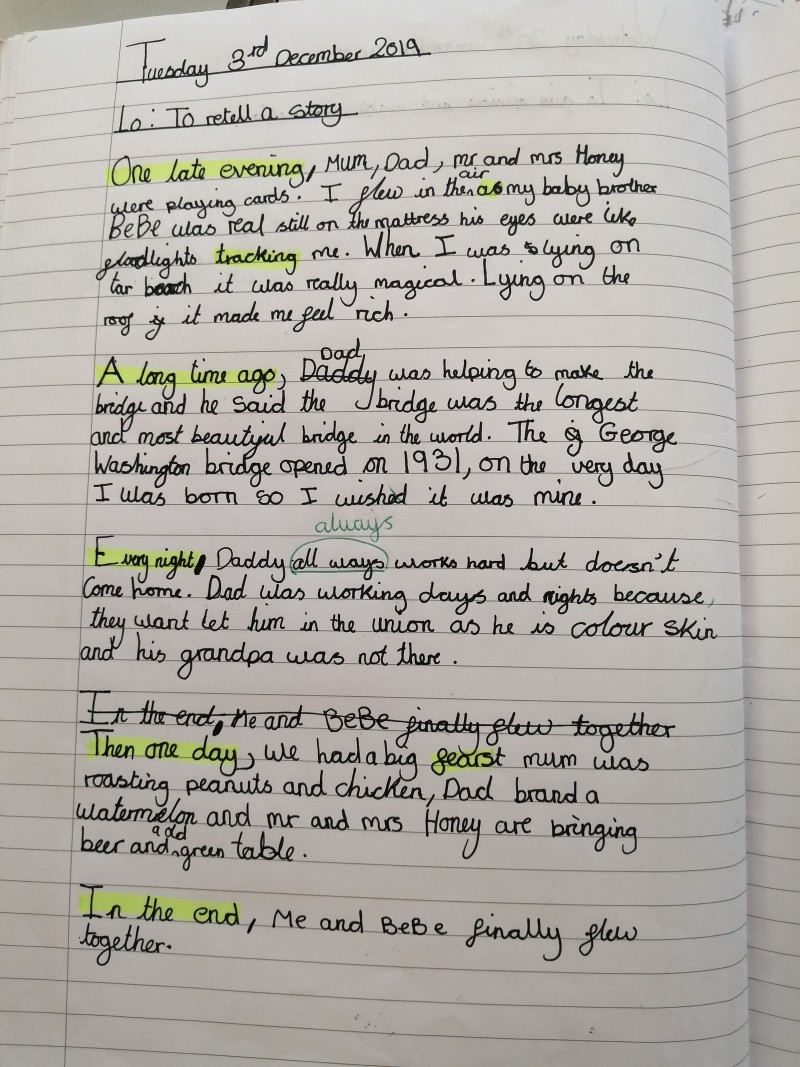 Tuesday 3rd December 2019
Lo: To retell a story
One late evening, Mum, Dad, mr and mrs Honey
were playing cards. I flew in the air as my baby brother
BeBe was real still on the mattress his eyes were like
floodlights tracking me. When I was lying on
tar beach it was really magical. Lying on the
roof it made me feel rich.
A long time ago, Dad was helping to make the
bridge and he said the bridge was the longest
and most beautyful bridge in the world. The George
Washington bridge opened on 1931, on the very day
I was born so I wished it was mine.
always
Every night, Daddy all ways works hard but doesn't
come home. Dad was working days and nights because,
they want let him in the union as he is colour skin
and his grandpa was not there.
In the end, Me and BeBe finally flew together
Then one day, we had a big fearst mum was
roasting peanuts and chicken, Dad brand a
watermelon and mr and mrs Honey are bringing
beer and old green table.
In the end, Me and BeBe finally flew
together.